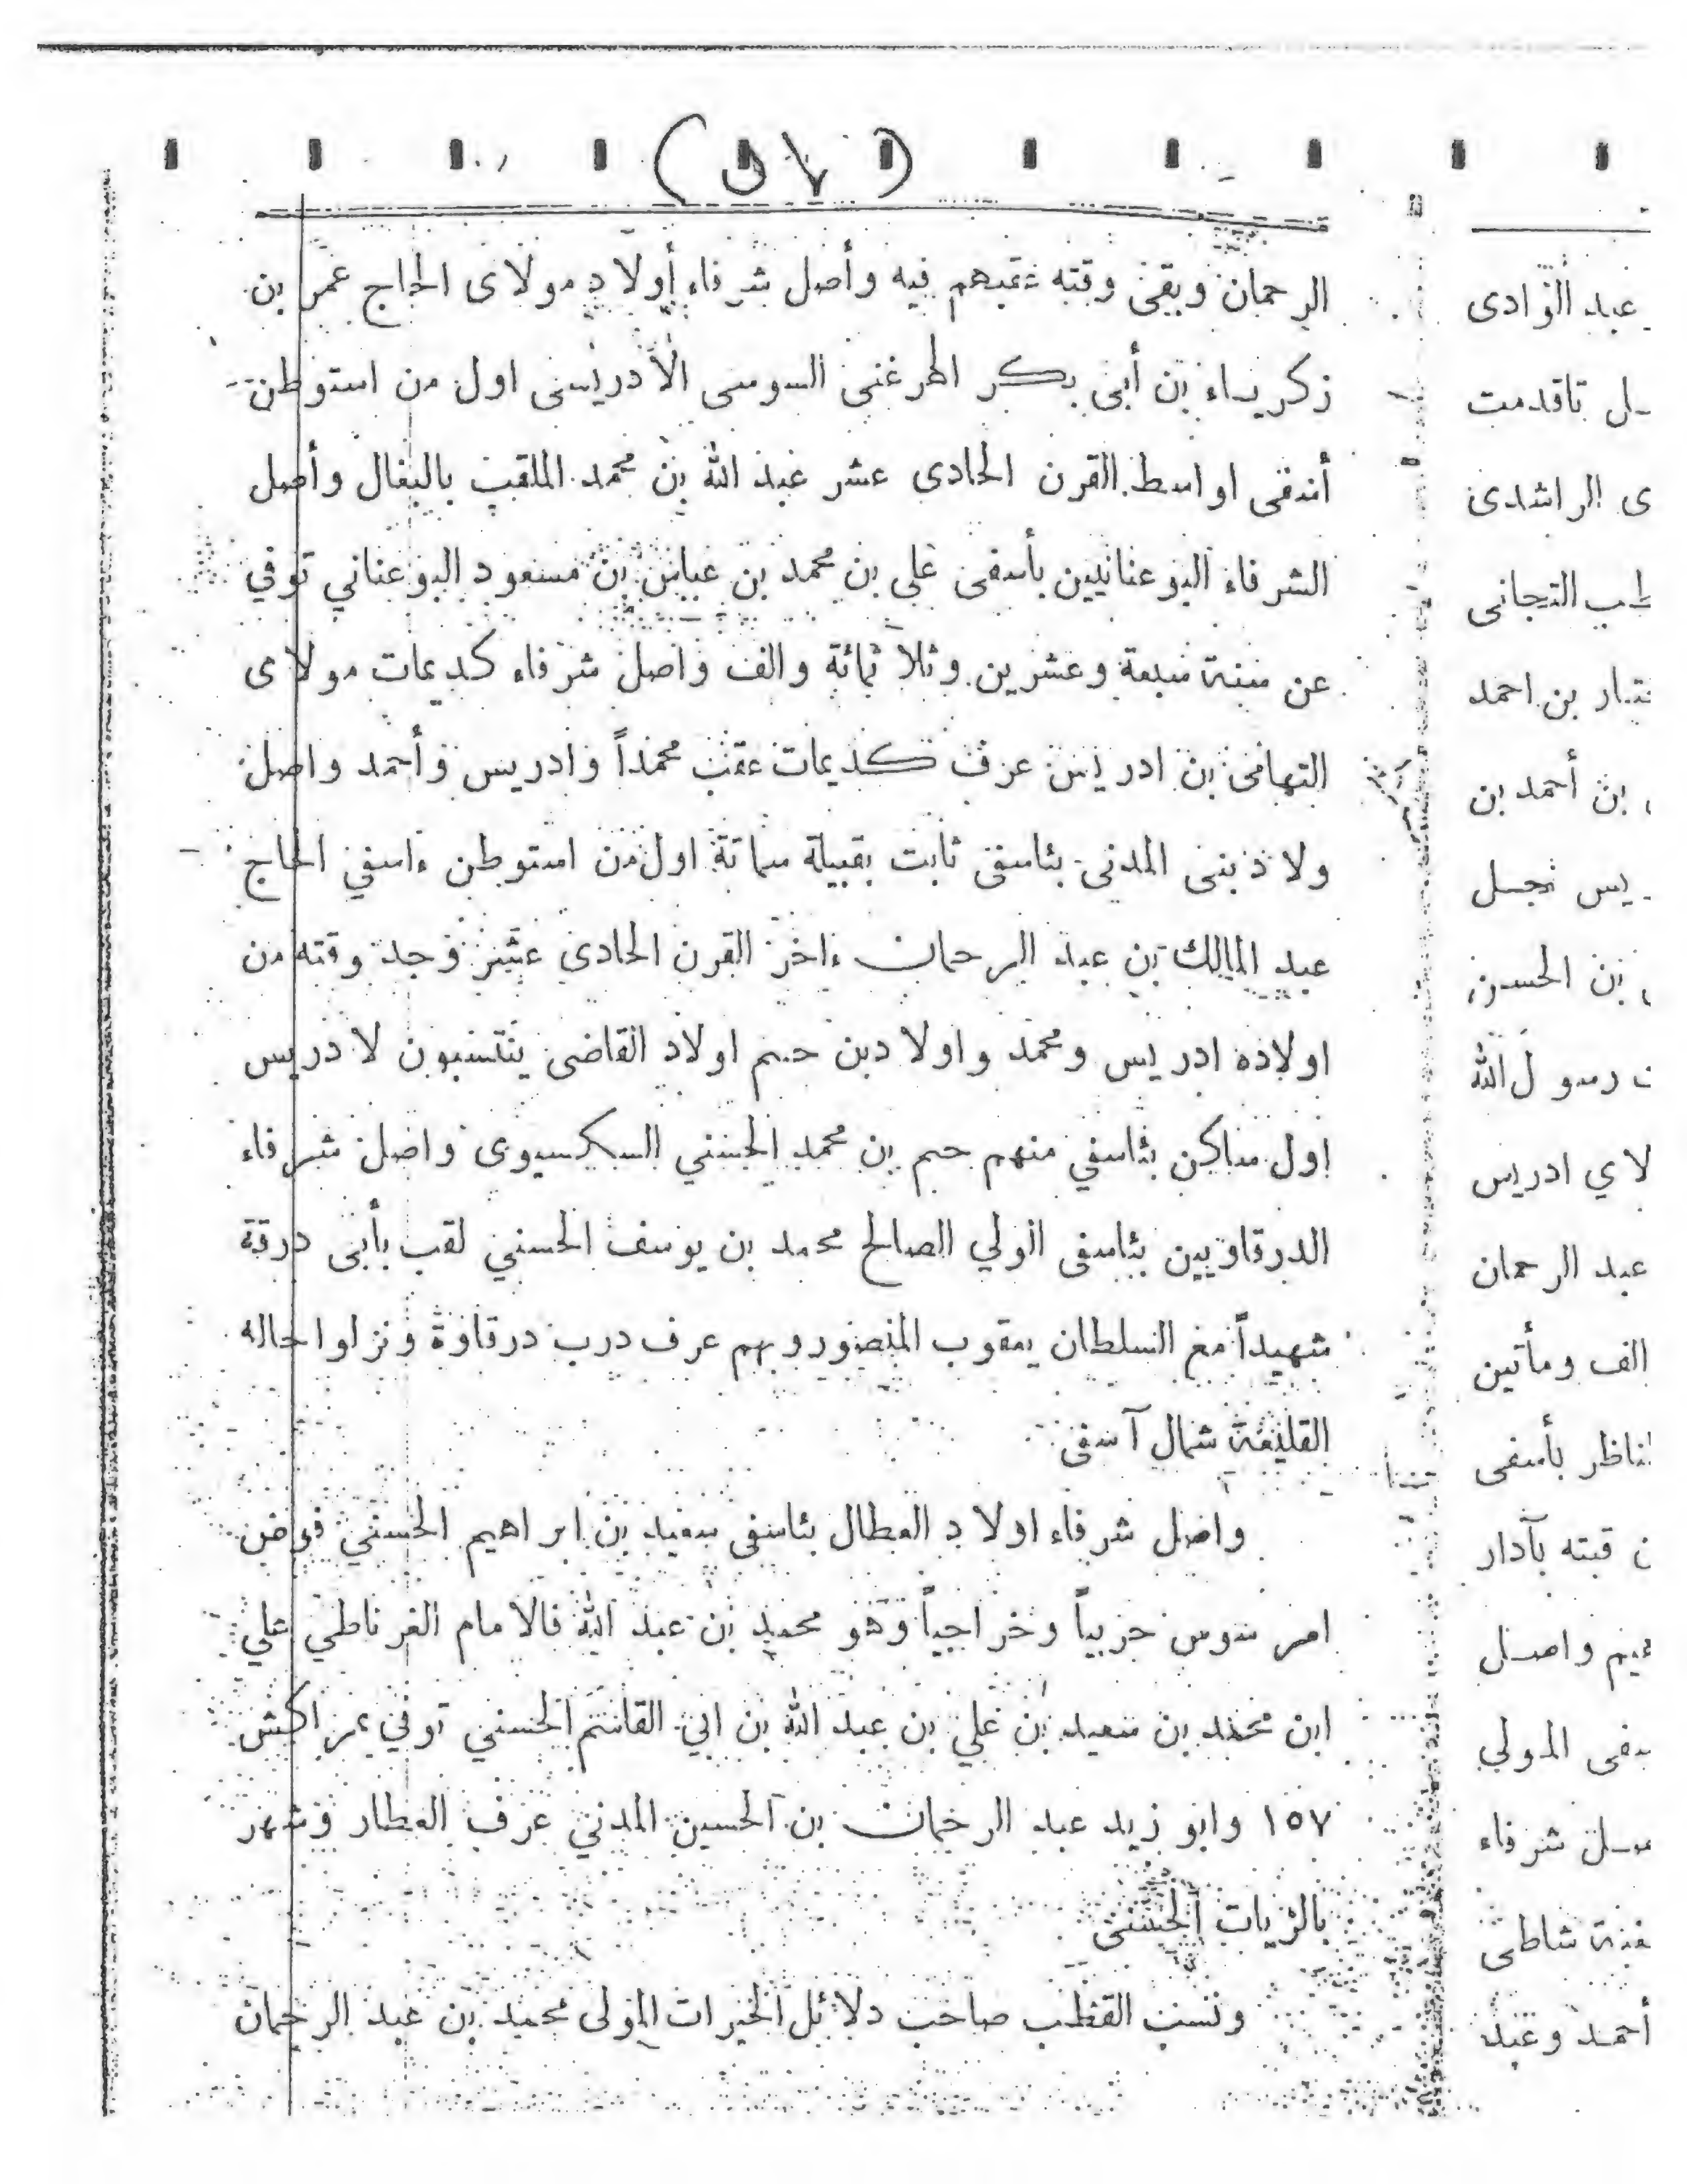 الرحمان وبقى وقته عقبهم فيه وأصل شرفاء أولاد مولاى الحاج عمر بن
زكرياء بن أبى بكر المرغنى السوسى الأدريسى اول من استوطن
أسفى اواسط القرن الحادى عشر عبد الله بن محمد الملقب بالبغال وأصل
الشرفاء البوعنانيين بأسفى على بن محمد بن عباس بن مسعود البوعناني توفي
عن سنة سبعة وعشرين وثلاثمائة والف واصل شرفاء كديمات مولاى
التهامى بن ادريس عرف كديمات عقب محمداً وادريس وأحمد واصل
ولاد بنى المدنى بئاسفى ثابت بقبيلة سماتة اول من استوطن ءاسفي الحاج
عبد المالك بن عبد الرحمان ءاخر القرن الحادى عشر وجد وقته من
اولاده ادريس ومحمد واولاد بن حيم اولاد القاضى ينتسبون لادريس
اول ساكن بئاسفي منهم حيم بن محمد الحسني السكسيوى واصل شرفاء
الدرقاويين بئاسفى الولي الصالح محمد بن يوسف الحسني لقب بأبى درقة
شهيداً مع السلطان يعقوب المنصور وبهم عرف درب درقاوة ونزلوا حاله
القليعة شمال آسفى
واصل شرفاء اولاد العطال بئاسفى سعيد بن ابراهيم الحسني فوض
امر سوس حزبياً وخراجياً وهو محمد بن عبد الله فالامام الغرناطي علي
ابن محمد بن سعيد بن علي بن عبد الله بن ابي القاسم الحسني توفي بمراكش
١٥٧ وابو زيد عبد الرحمان بن الحسين المدني عرف العطار وشهر
بالزيات الحسنى
ونسب القطب صاحب دلائل الخيرات المولى محمد بن عبد الرحمان
عبد الوادى
تاقدمت
الراشدى
التجانى
بن احمد
بن أحمد بن
نجل
بن الحسن
رسول الله
ادريس
عبد الرحمان
الف ومأتين
بأسفى
قبته بآدار
واصل
المولى
شرفاء
شاطى
أحمد وعبد